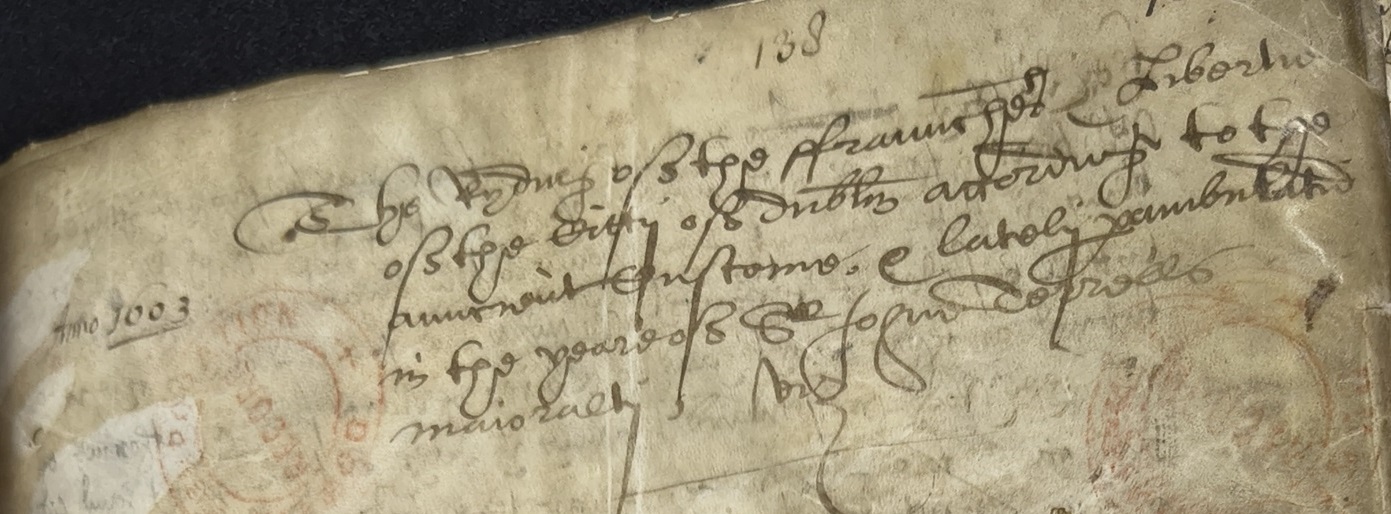 138
The Rydinge off the ffraunches & Liberties
off the Cittij off Dublin accordinge to the
Anno 1603
auncient Custome, & lately perambulated
in the yeare off Sr John Terrells
maioraltj, viz